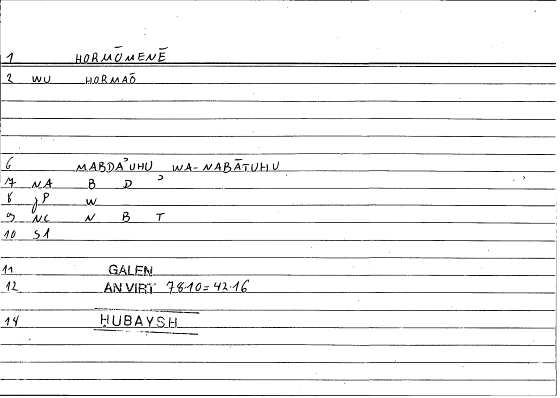 1 HORMŌMENĒ
2 WU HORMAŌ
6 MABDAʾUHU WA-NABĀTUHU
7 NA B D ʾ
8 jP W
9 NC N B T
10 S1
11 GALEN
12 AN VIRT 78·10=42·16
14 ḤUBAYSH